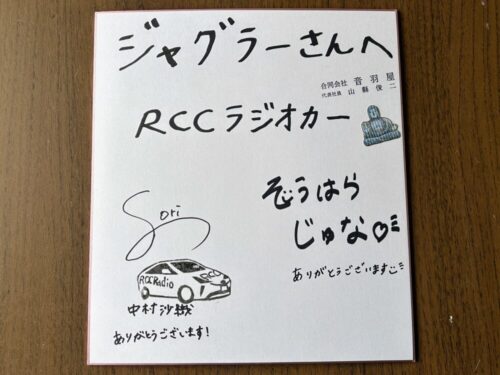 ジャグラーさんへ
合同会社 音羽屋
代表社員 山縣俊二
RCCラジオカー
Sori
RCCRadio
中村沙樹
ありがとうございます!
ぞうはら
じゅな
ありがとうございます